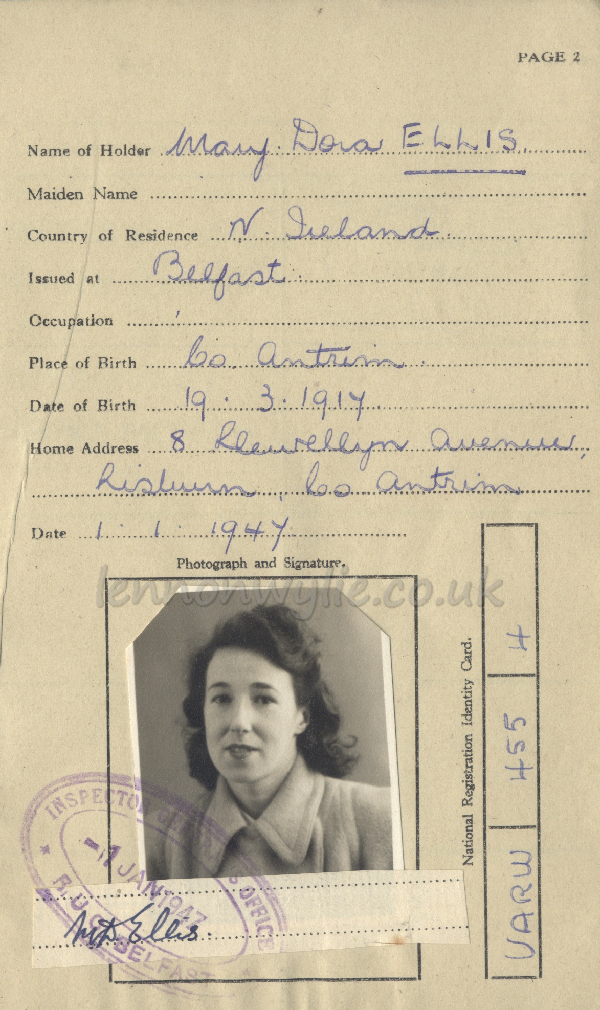 PAGE 2
Name of Holder Mary Dora ELLIS
Maiden Name
Country of Residence N. Ireland.
Issued at Belfast.
Occupation
Place of Birth Co. Antrim.
Date of Birth 19. 3. 1917.
Home Address 8 Llewellyn Avenue,
Lisburn, Co Antrim
Date 1. 1. 1947
Photograph and Signature.
lennonwylie.co.uk
National Registration Identity Card.
UARW 455 4
INSPECTOR OFFICE
-1 JAN 1947
R.U.C. BELFAST
M D Ellis.